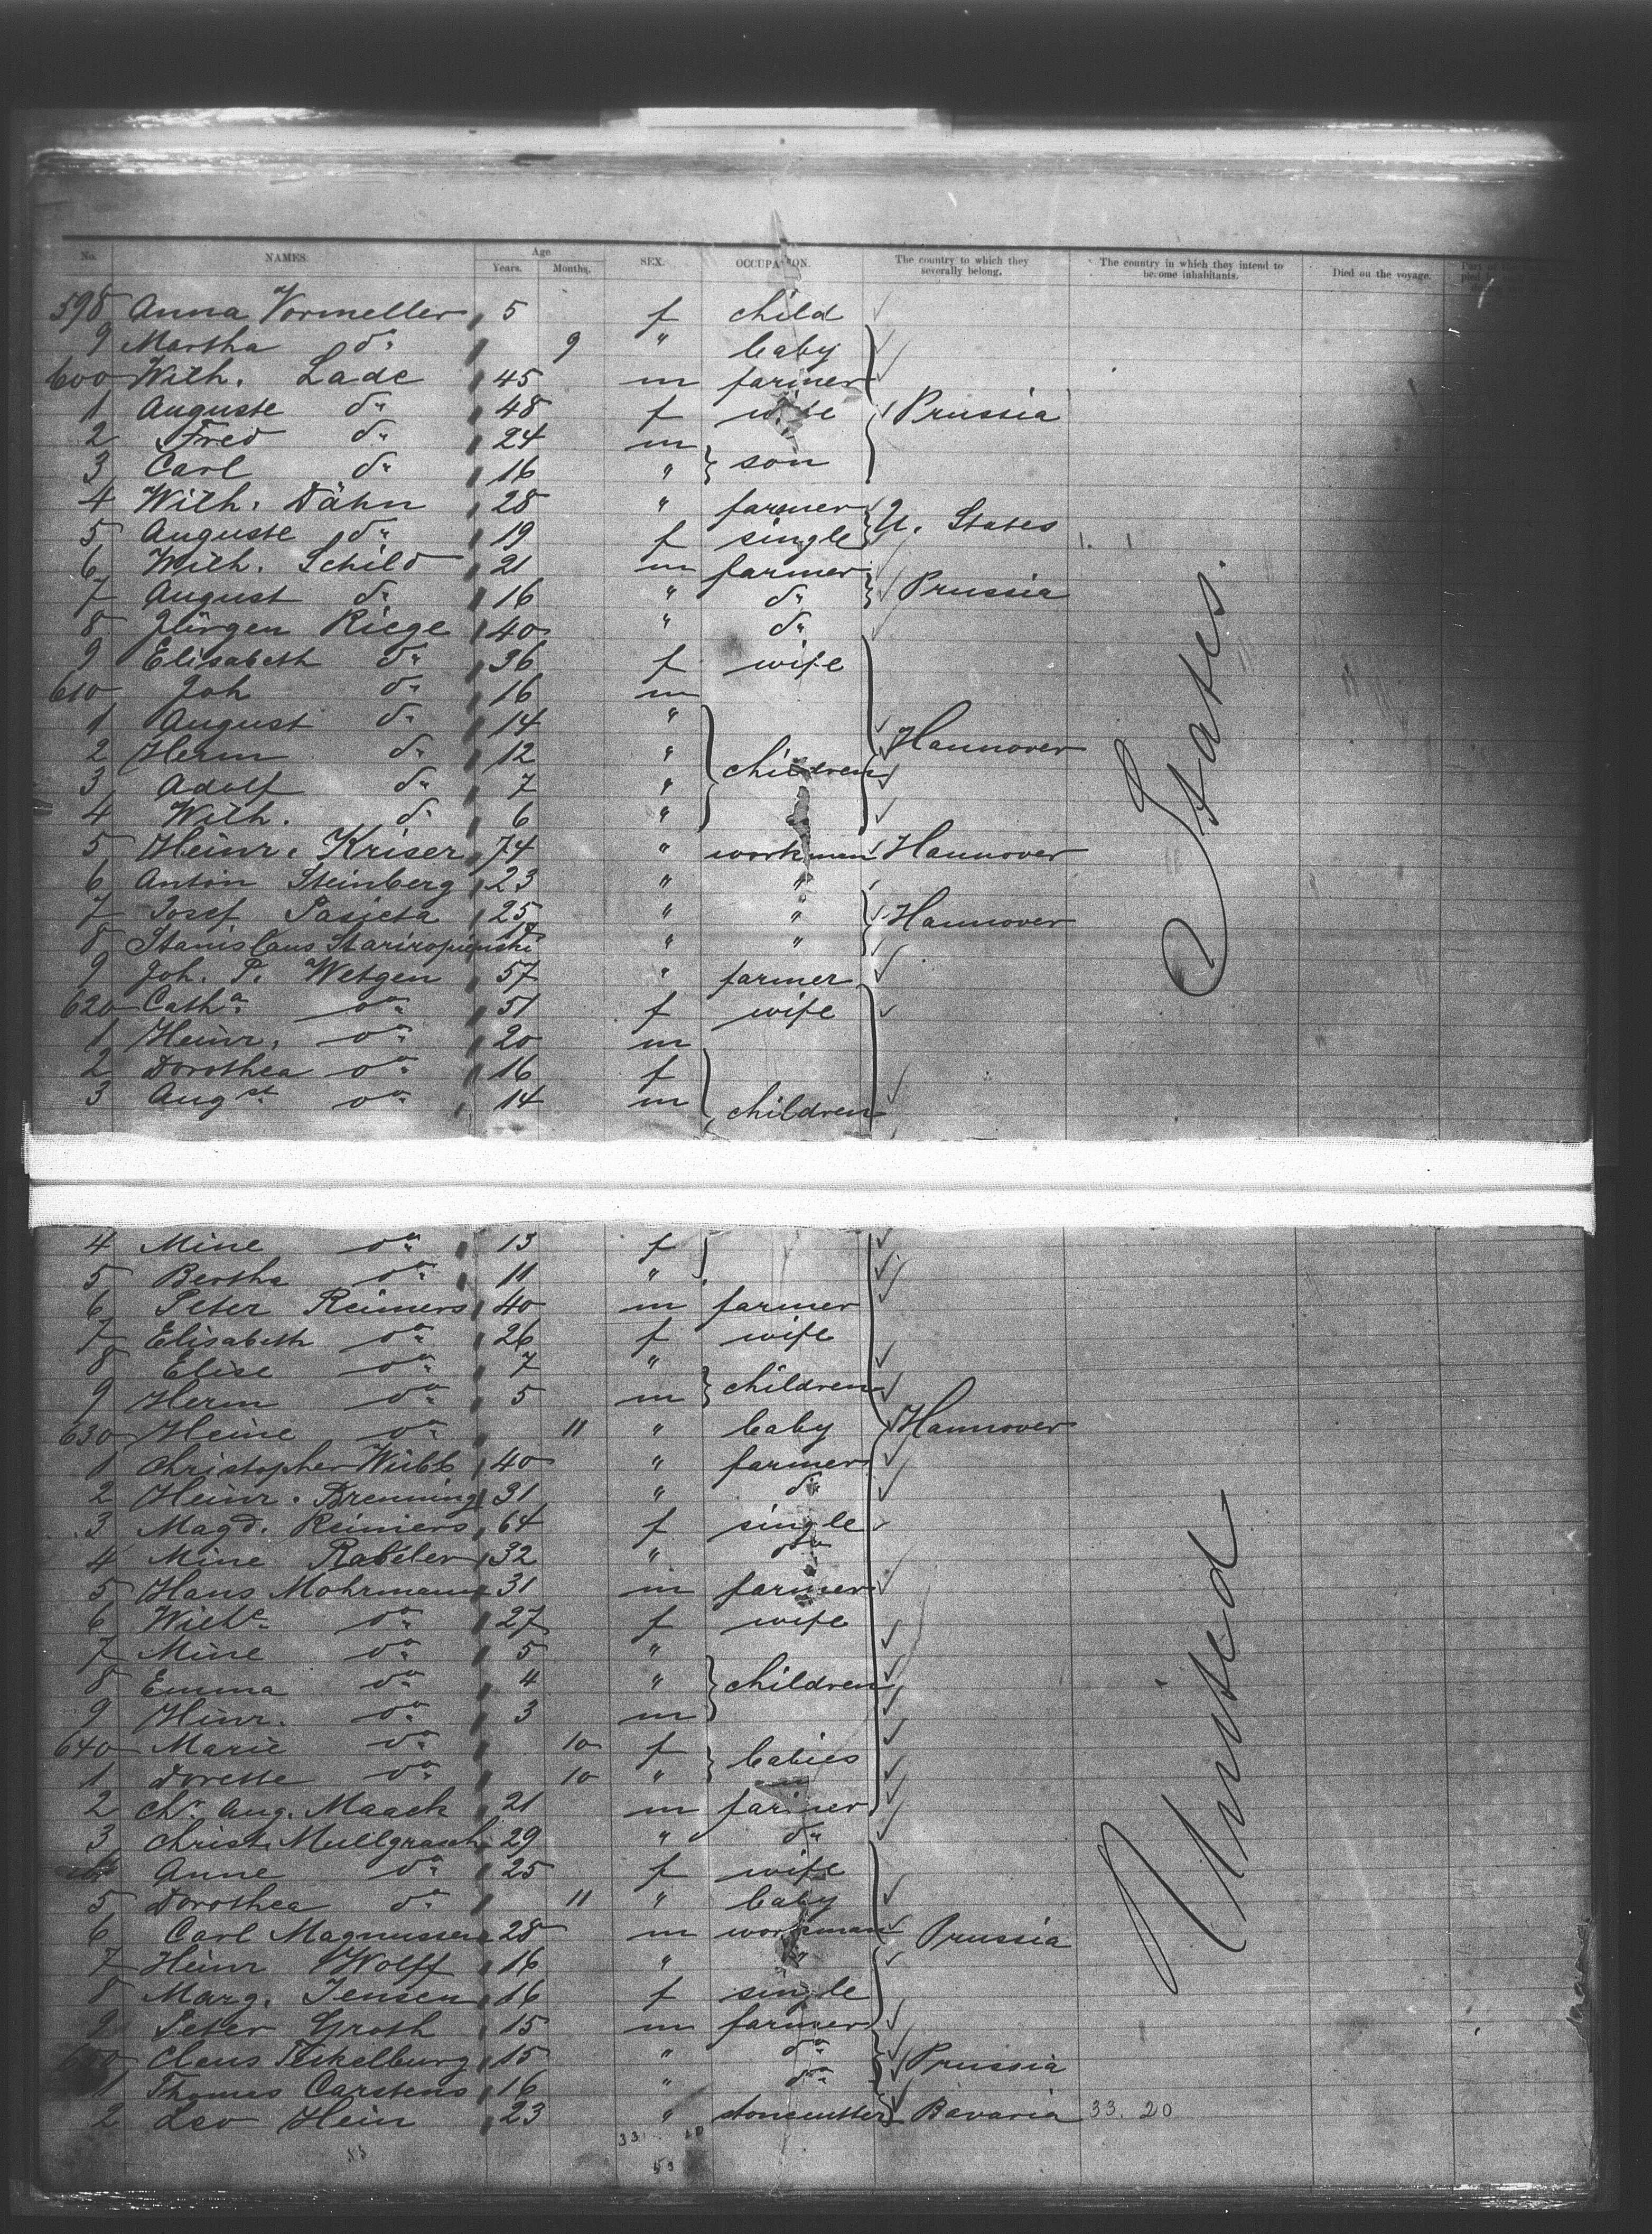 No. NAMES Age Years. Months. SEX. OCCUPATION. The country to which they severally belong. The country in which they intend to become inhabitants. Died on the voyage.
598 Anna Vormeller 5 f child
9 Martha do 9 " baby
600 Wilh. Lade 45 m farmer
1 Auguste do 48 f wife Prussia
2 Fred do 24 m
3 Carl do 16 " son
4 Wilh. Dähn 28 " farmer U. States
5 Auguste do 19 f single
6 Wilh. Schild 21 m farmer
7 August do 16 " do Prussia
8 Jürgen Riege 40 " do
9 Elisabeth do 36 f wife
610 Joh do 16 m
1 August do 14 "
2 Herm do 12 " children Hannover
3 Adolf do 7 "
4 Wilh. do 6 "
5 Heinr. Kriser 74 " workman Hannover
6 Anton Steinberg 23 " "
7 Josef Pasieta 25 " " Hannover
8 Stanislaus 17 " "
9 Joh. P. Wetgen 57 " farmer
620 Catha do 51 f wife
1 Heinr. do 20 m
2 Dorothea do 16 f
3 Augst do 14 m children
4 Mine do 13 f
5 Bertha do 11 "
6 Peter Reimers 40 m farmer
7 Elisabeth do 26 f wife
8 Elise do 7 "
9 Herm do 5 m children
630 Heine do 11 " baby Hannover
1 Christopher Wübb 40 " farmer
2 Heinr. Brenning 31 " do
3 Magd. Reimers 64 f single
4 Mine Rabeler 32 " do
5 Hans Mohrmann 31 m farmer
6 Wilhe do 27 f wife
7 Mine do 5 "
8 Emma do 4 " children
9 Hinr. do 3 m
640 Marie do 10 f babies
1 Dorette do 10 "
2 Chr. Aug. Maack 21 m farmer
3 Christ. 29 " do
Anne do 25 f wife
5 Dorothea do 11 " baby
6 Carl Magnussen 28 m workman Prussia
7 Heinr Wolff 16 " "
8 Marg. Jensen 16 f single
9 Peter Groth 15 m farmer
650 Claus Teckelburg 15 " do Prussia
1 Thomas Carstens 16 " do
2 Leo Hein 23 " stonecutter Bavaria 33. 20
United States.